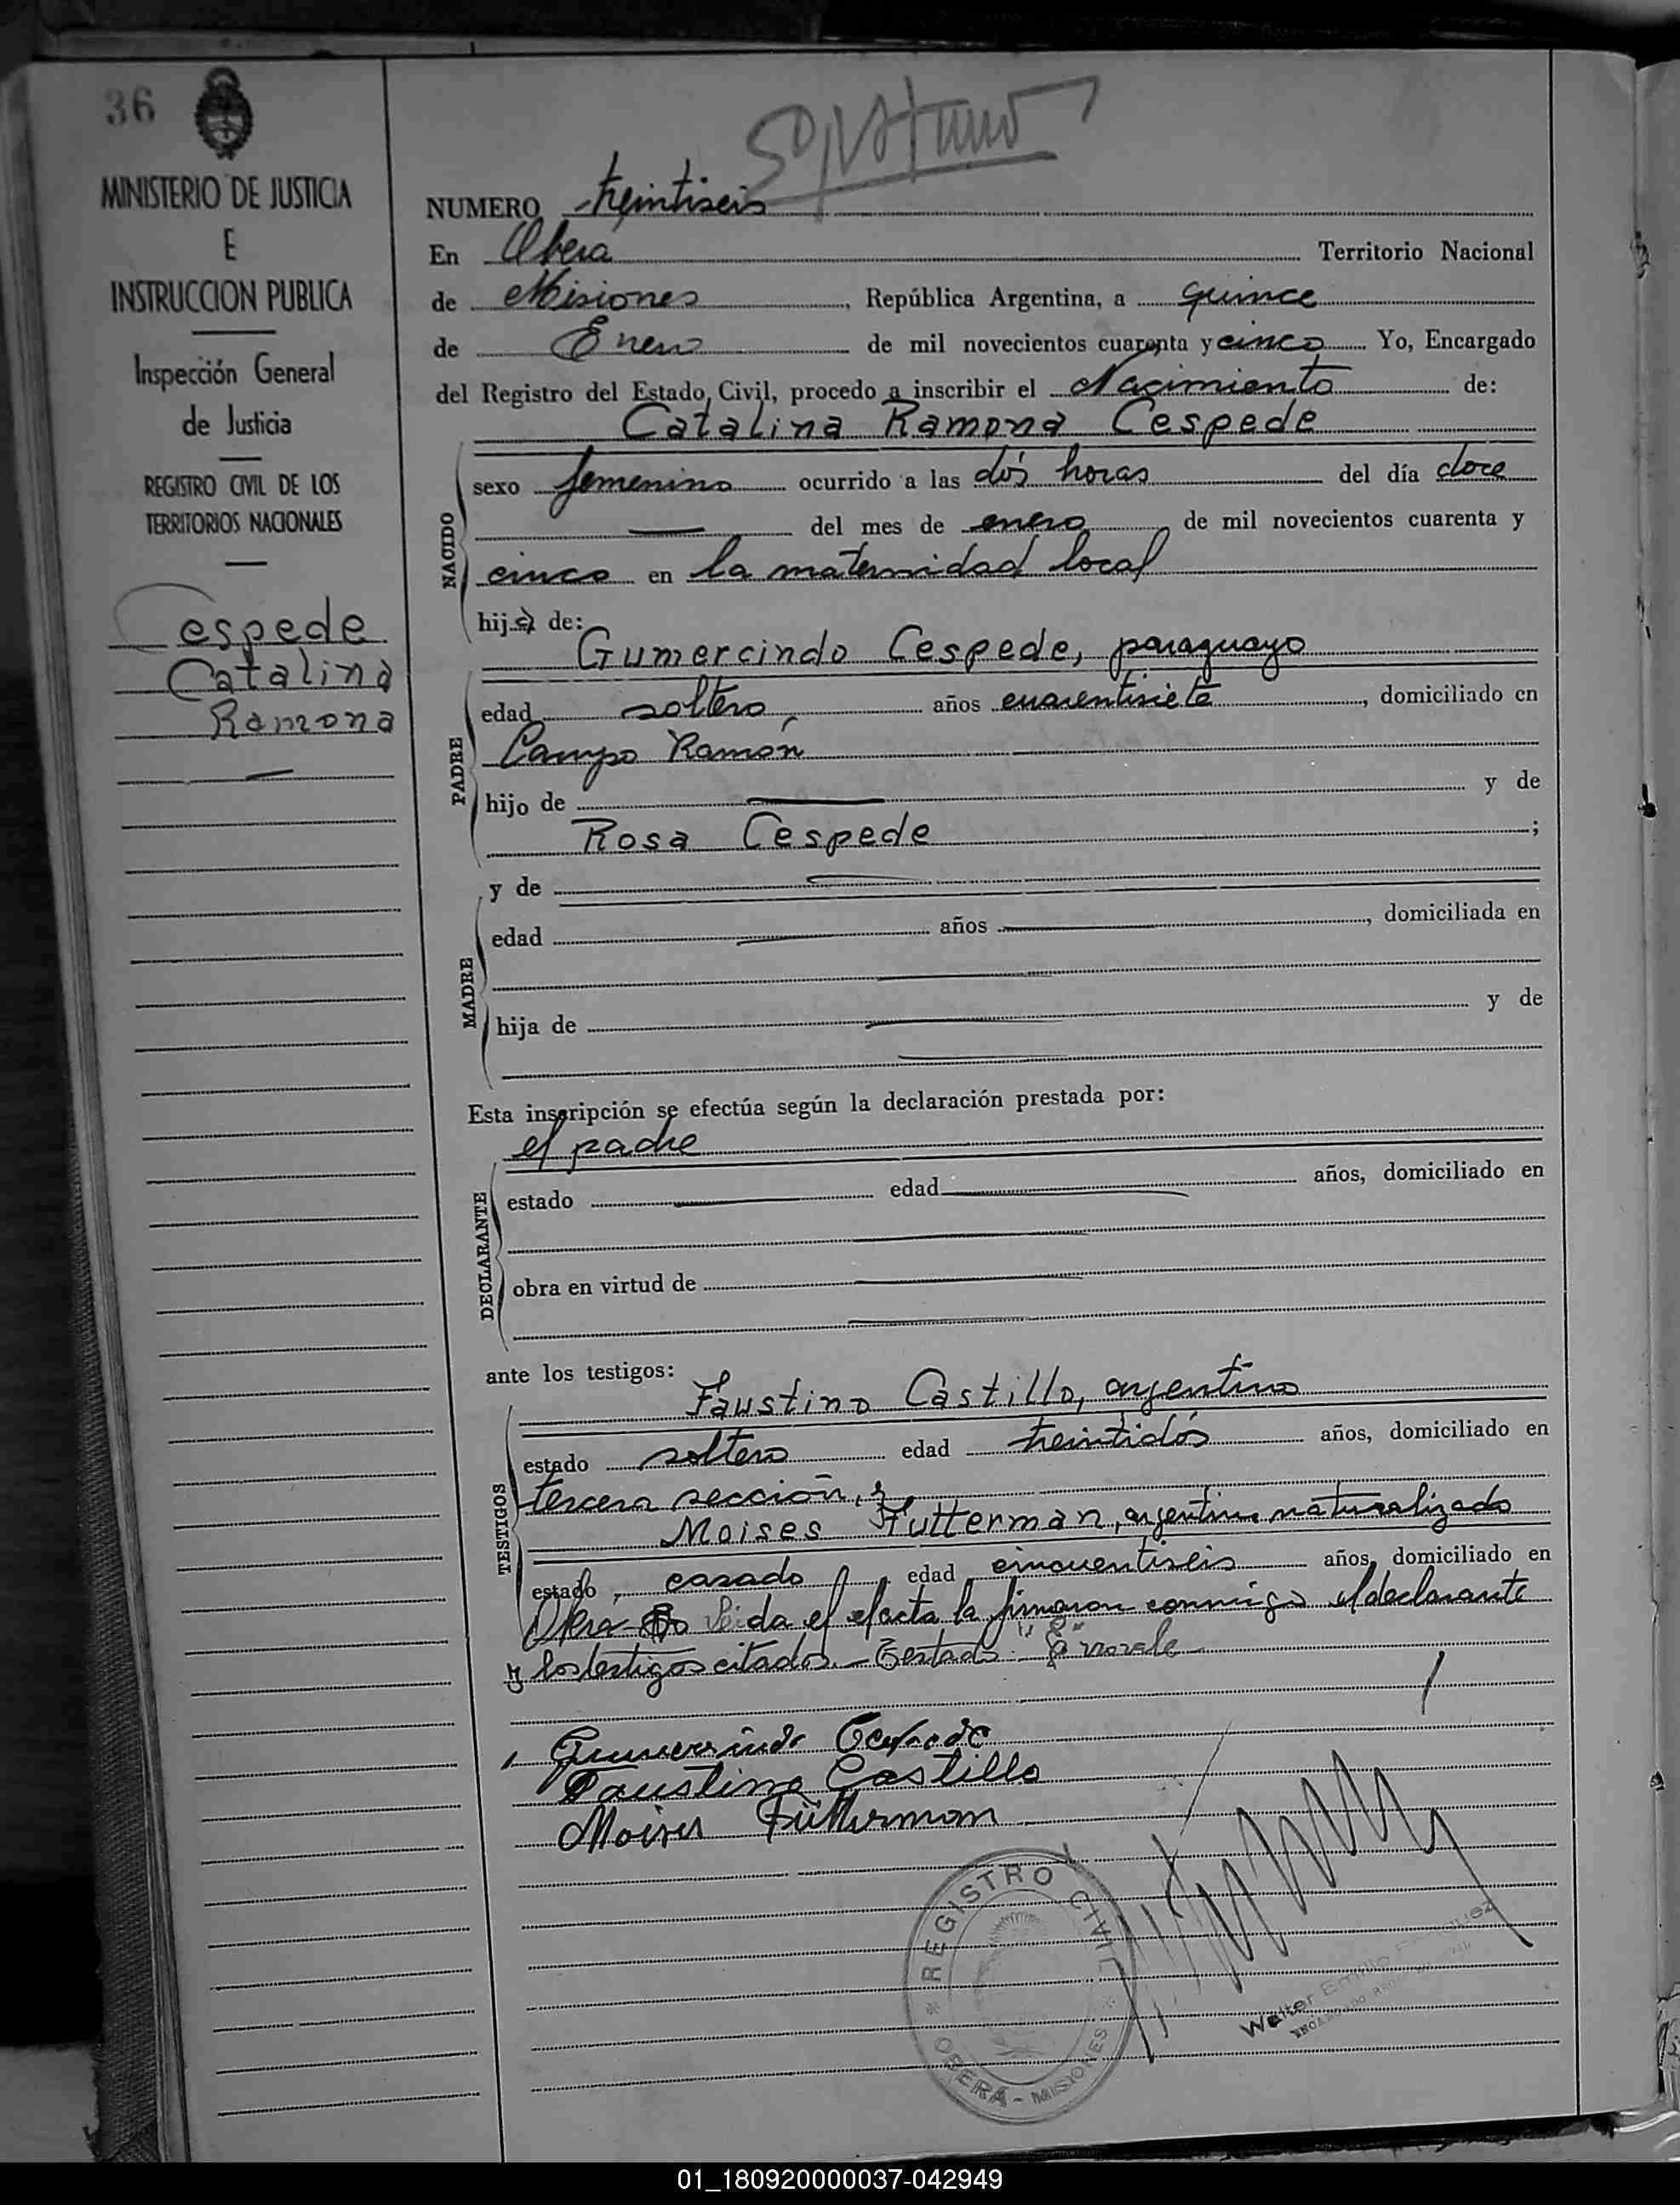 36
MINISTERIO DE JUSTICIA
E
INSTRUCCION PUBLICA
Inspección General
de Justicia
REGISTRO CIVIL DE LOS
TERRITORIOS NACIONALES
Cespede
Catalina
Ramona
NUMERO treintiseis
En Oberá Territorio Nacional
de Misiones, República Argentina, a quince
de Enero de mil novecientos cuarenta y cinco Yo, Encargado
del Registro del Estado Civil, procedo a inscribir el Nacimiento de:
Catalina Ramona Cespede
NACIDO
sexo femenino ocurrido a las dos horas del día doce
del mes de enero de mil novecientos cuarenta y
cinco en la maternidad local
hija de:
Gumercindo Cespede, paraguayo
PADRE
edad soltero, años cuarentisiete, domiciliado en
Campo Ramón
hijo de y de
Rosa Cespede;
MADRE
y de
edad años, domiciliada en
hija de y de
Esta inscripción se efectúa según la declaración prestada por:
el padre
DECLARANTE
estado edad años, domiciliado en
obra en virtud de
ante los testigos:
Faustino Castillo, argentino
TESTIGOS
estado soltero edad treintidós años, domiciliado en
tercera sección, y
Moises Futterman, argentino naturalizado
estado casado, edad cincuentiseis años, domiciliado en
Oberá leida el acta la firmaron conmigo el declarante
y los testigos citados.- Testado: no vale
Gumercindo Cespede
Faustino Castillo
Moises Fütterman
REGISTRO CIVIL
OBERÁ - MISIONES
Walter Emilio
01_180920000037-042949